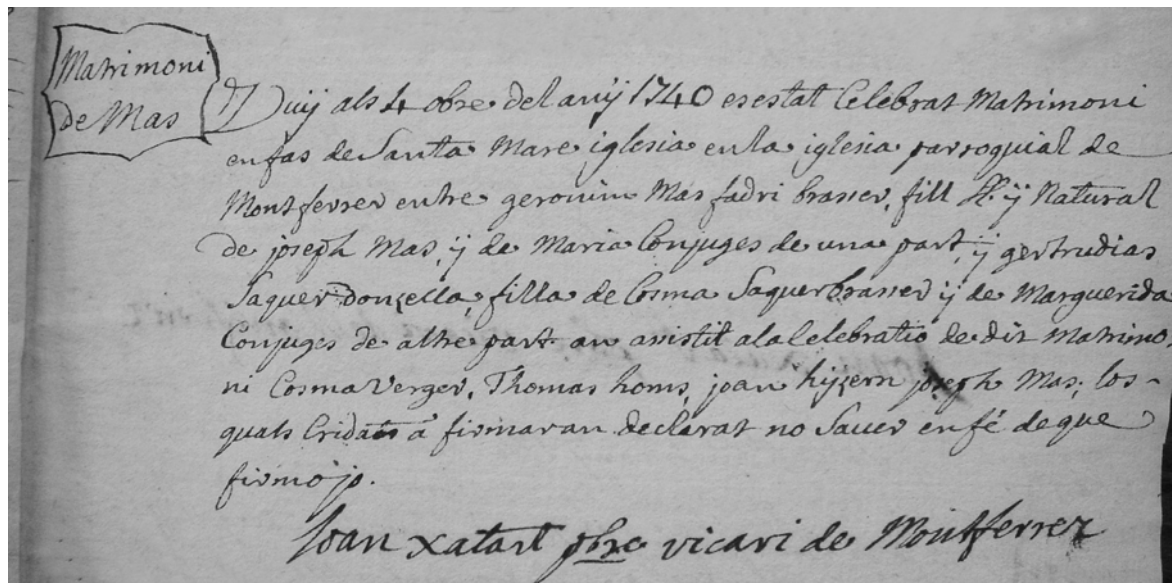 Matrimoni
de Mas
Vuij als 4 obre del anij 1740 es estat Celebrat Matrimoni
en fas de Santa Mare iglesia en la iglesia parroquial de
Montferrer entre geronim Mas fadri brasser, fill ll. ÿ Natural
de joseph Mas, ÿ de Maria Conjuges de una part, ÿ gertrudias
Saquer donzella, filla de Cosma Saquer brasser ÿ de Marguerida
Conjuges de altre part an assistit a la Celebratio de dit Matrimo-
ni Cosma Verger, Thomas homs, joan joseph Mas, los
quals Cridats á firmar an declarat no Sauer en fé de que
firmo jo.
Joan Xatart pbre vicari de Montferrer